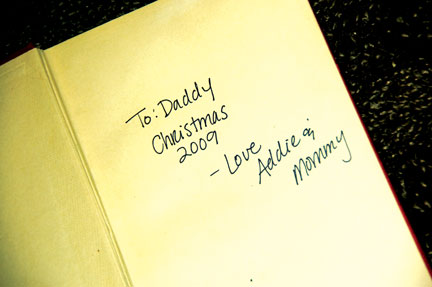 To: Daddy
Christmas
2009
- Love
Addie &
Mommy